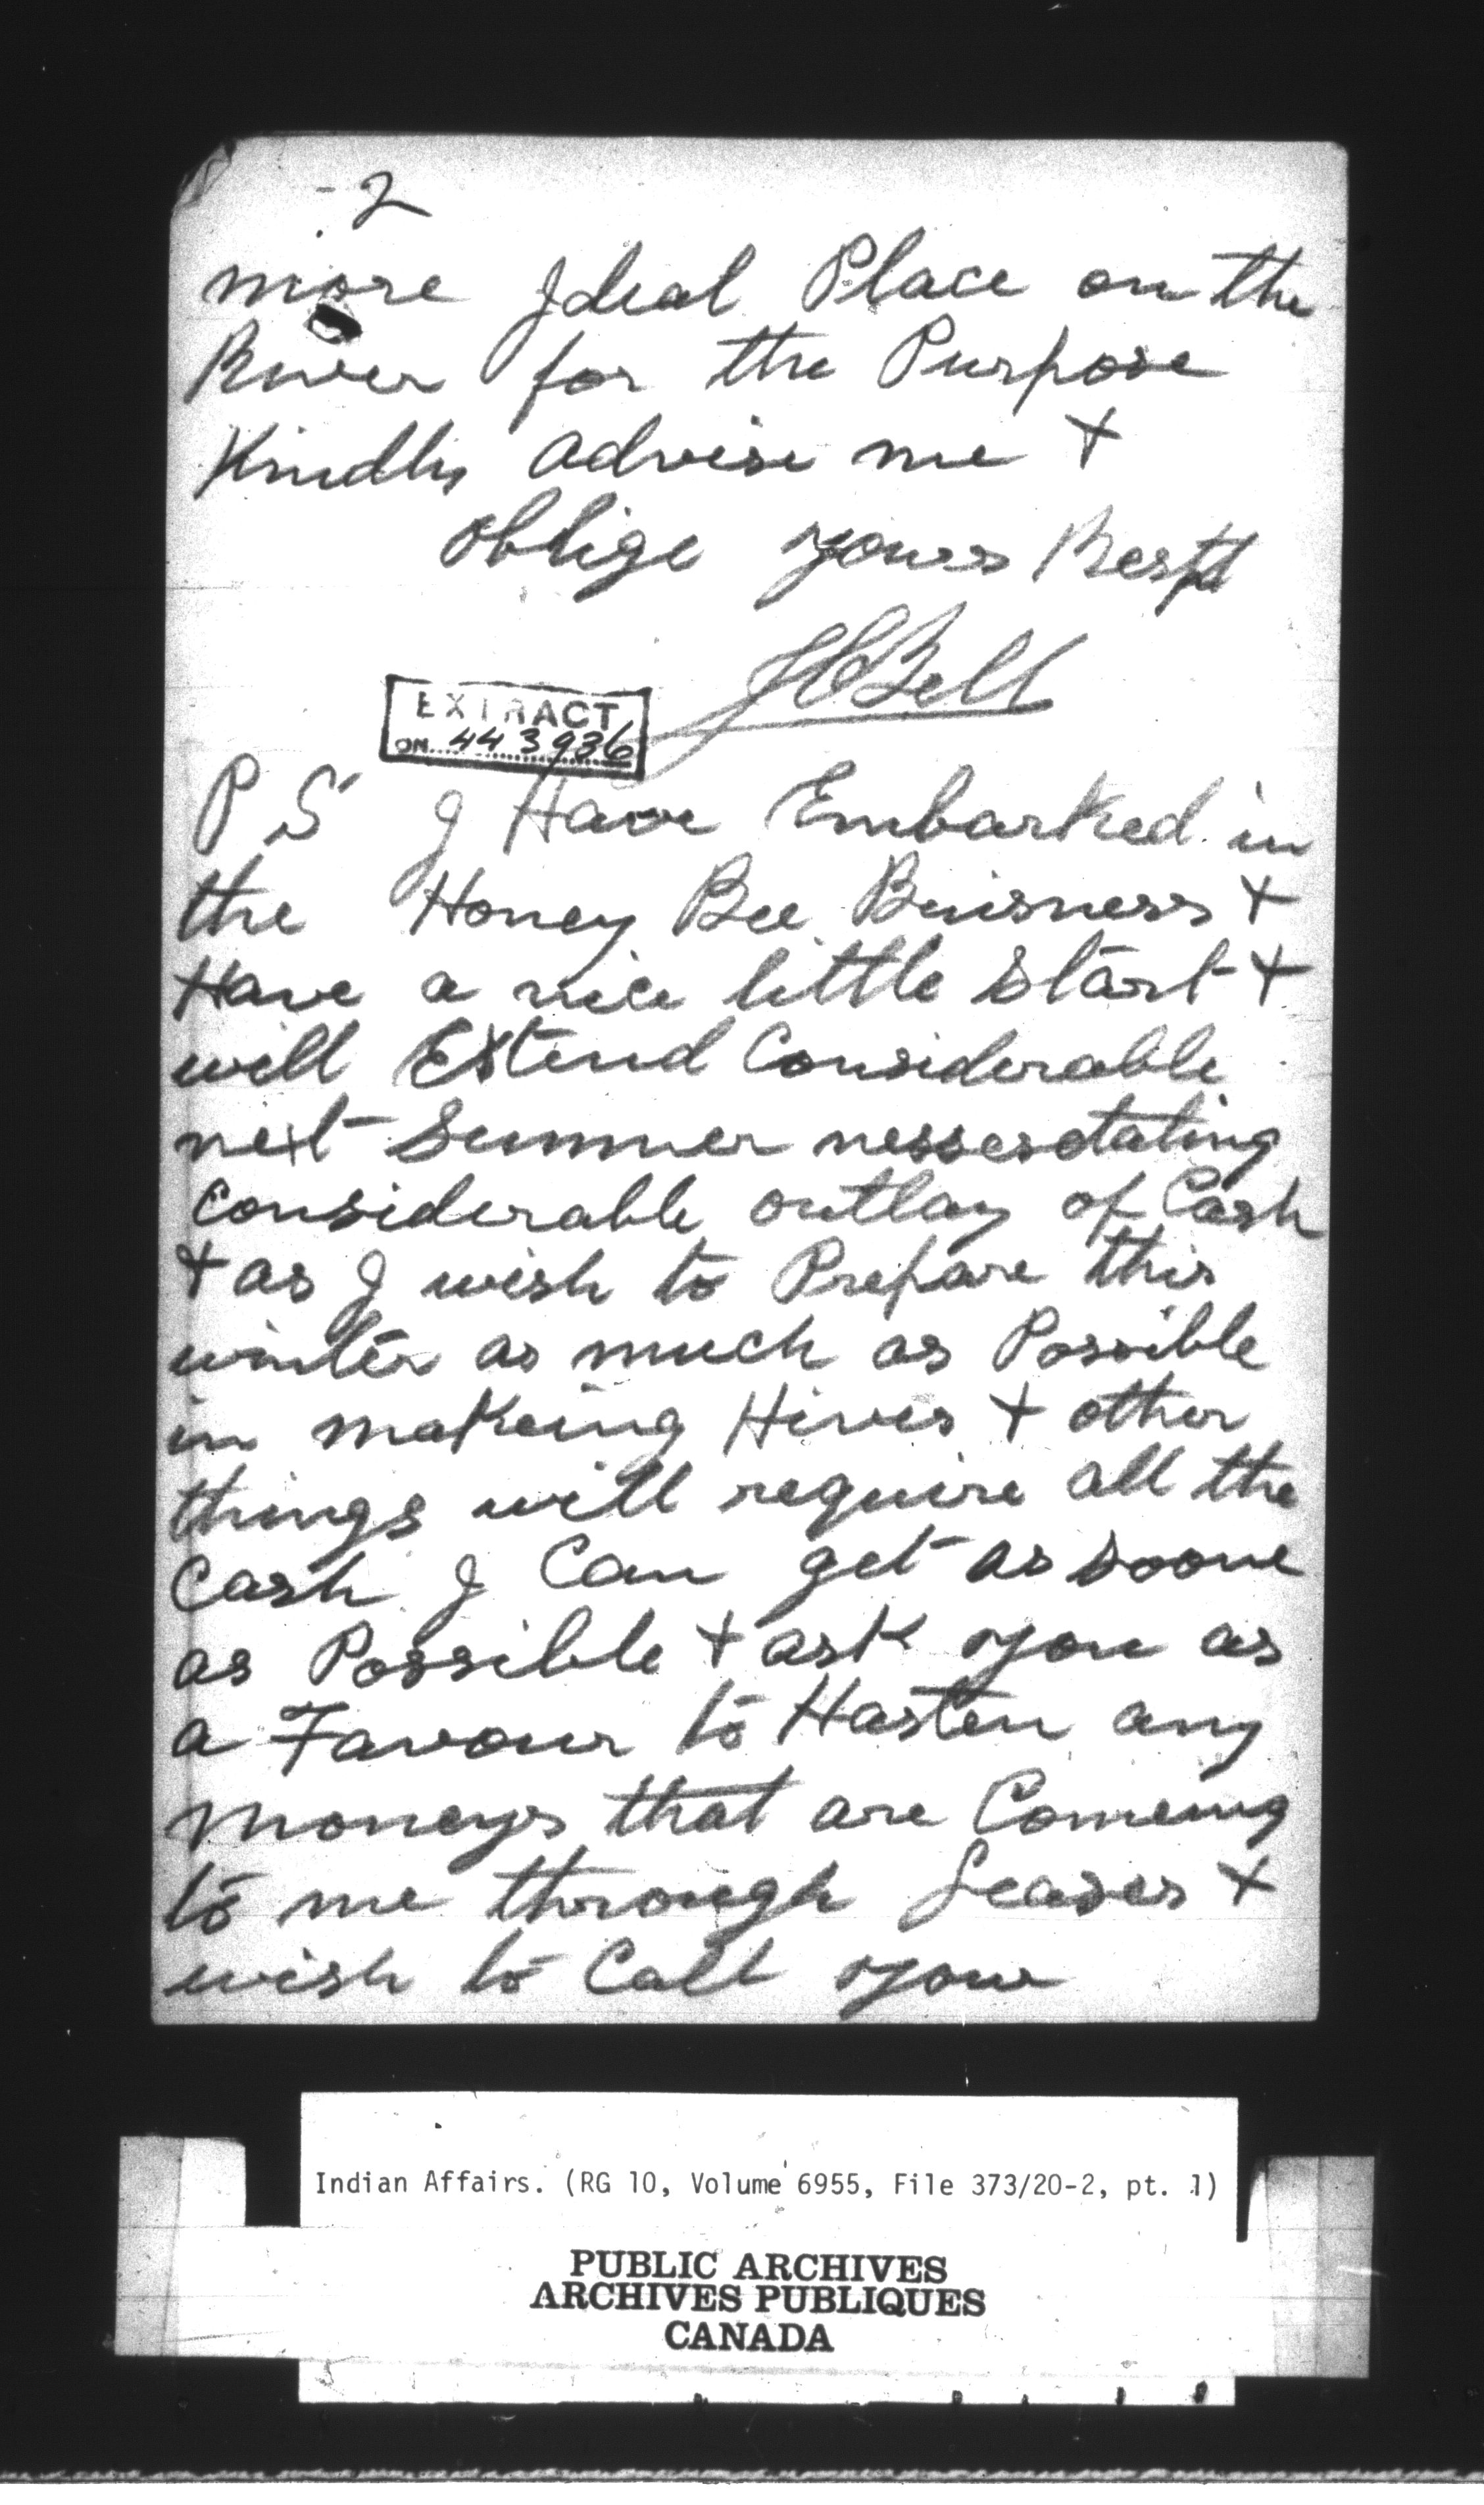 - 2
more Ideal Place on the
River for the Purpose
Kindly advise me +
oblige yours Respt
JCBell
EXTRACT
ON 443936
P S I Have Embarked in
the Honey Bee Buisness +
Have a nice little start +
will Extend Considerable
next Summer nessesotating
Considerable outlay of Cash
+ as I wish to Prepare this
winter as much as Possible
in makeing Hives + other
things will require all the
Cash I Can get as soone
as Possible + ask you as
a Favour to Hasten any
moneys that are Comeing
to me through Leases +
wish to Call your
Indian Affairs. (RG 10, Volume 6955, File 373/20-2, pt. 1)
PUBLIC ARCHIVES
ARCHIVES PUBLIQUES
CANADA